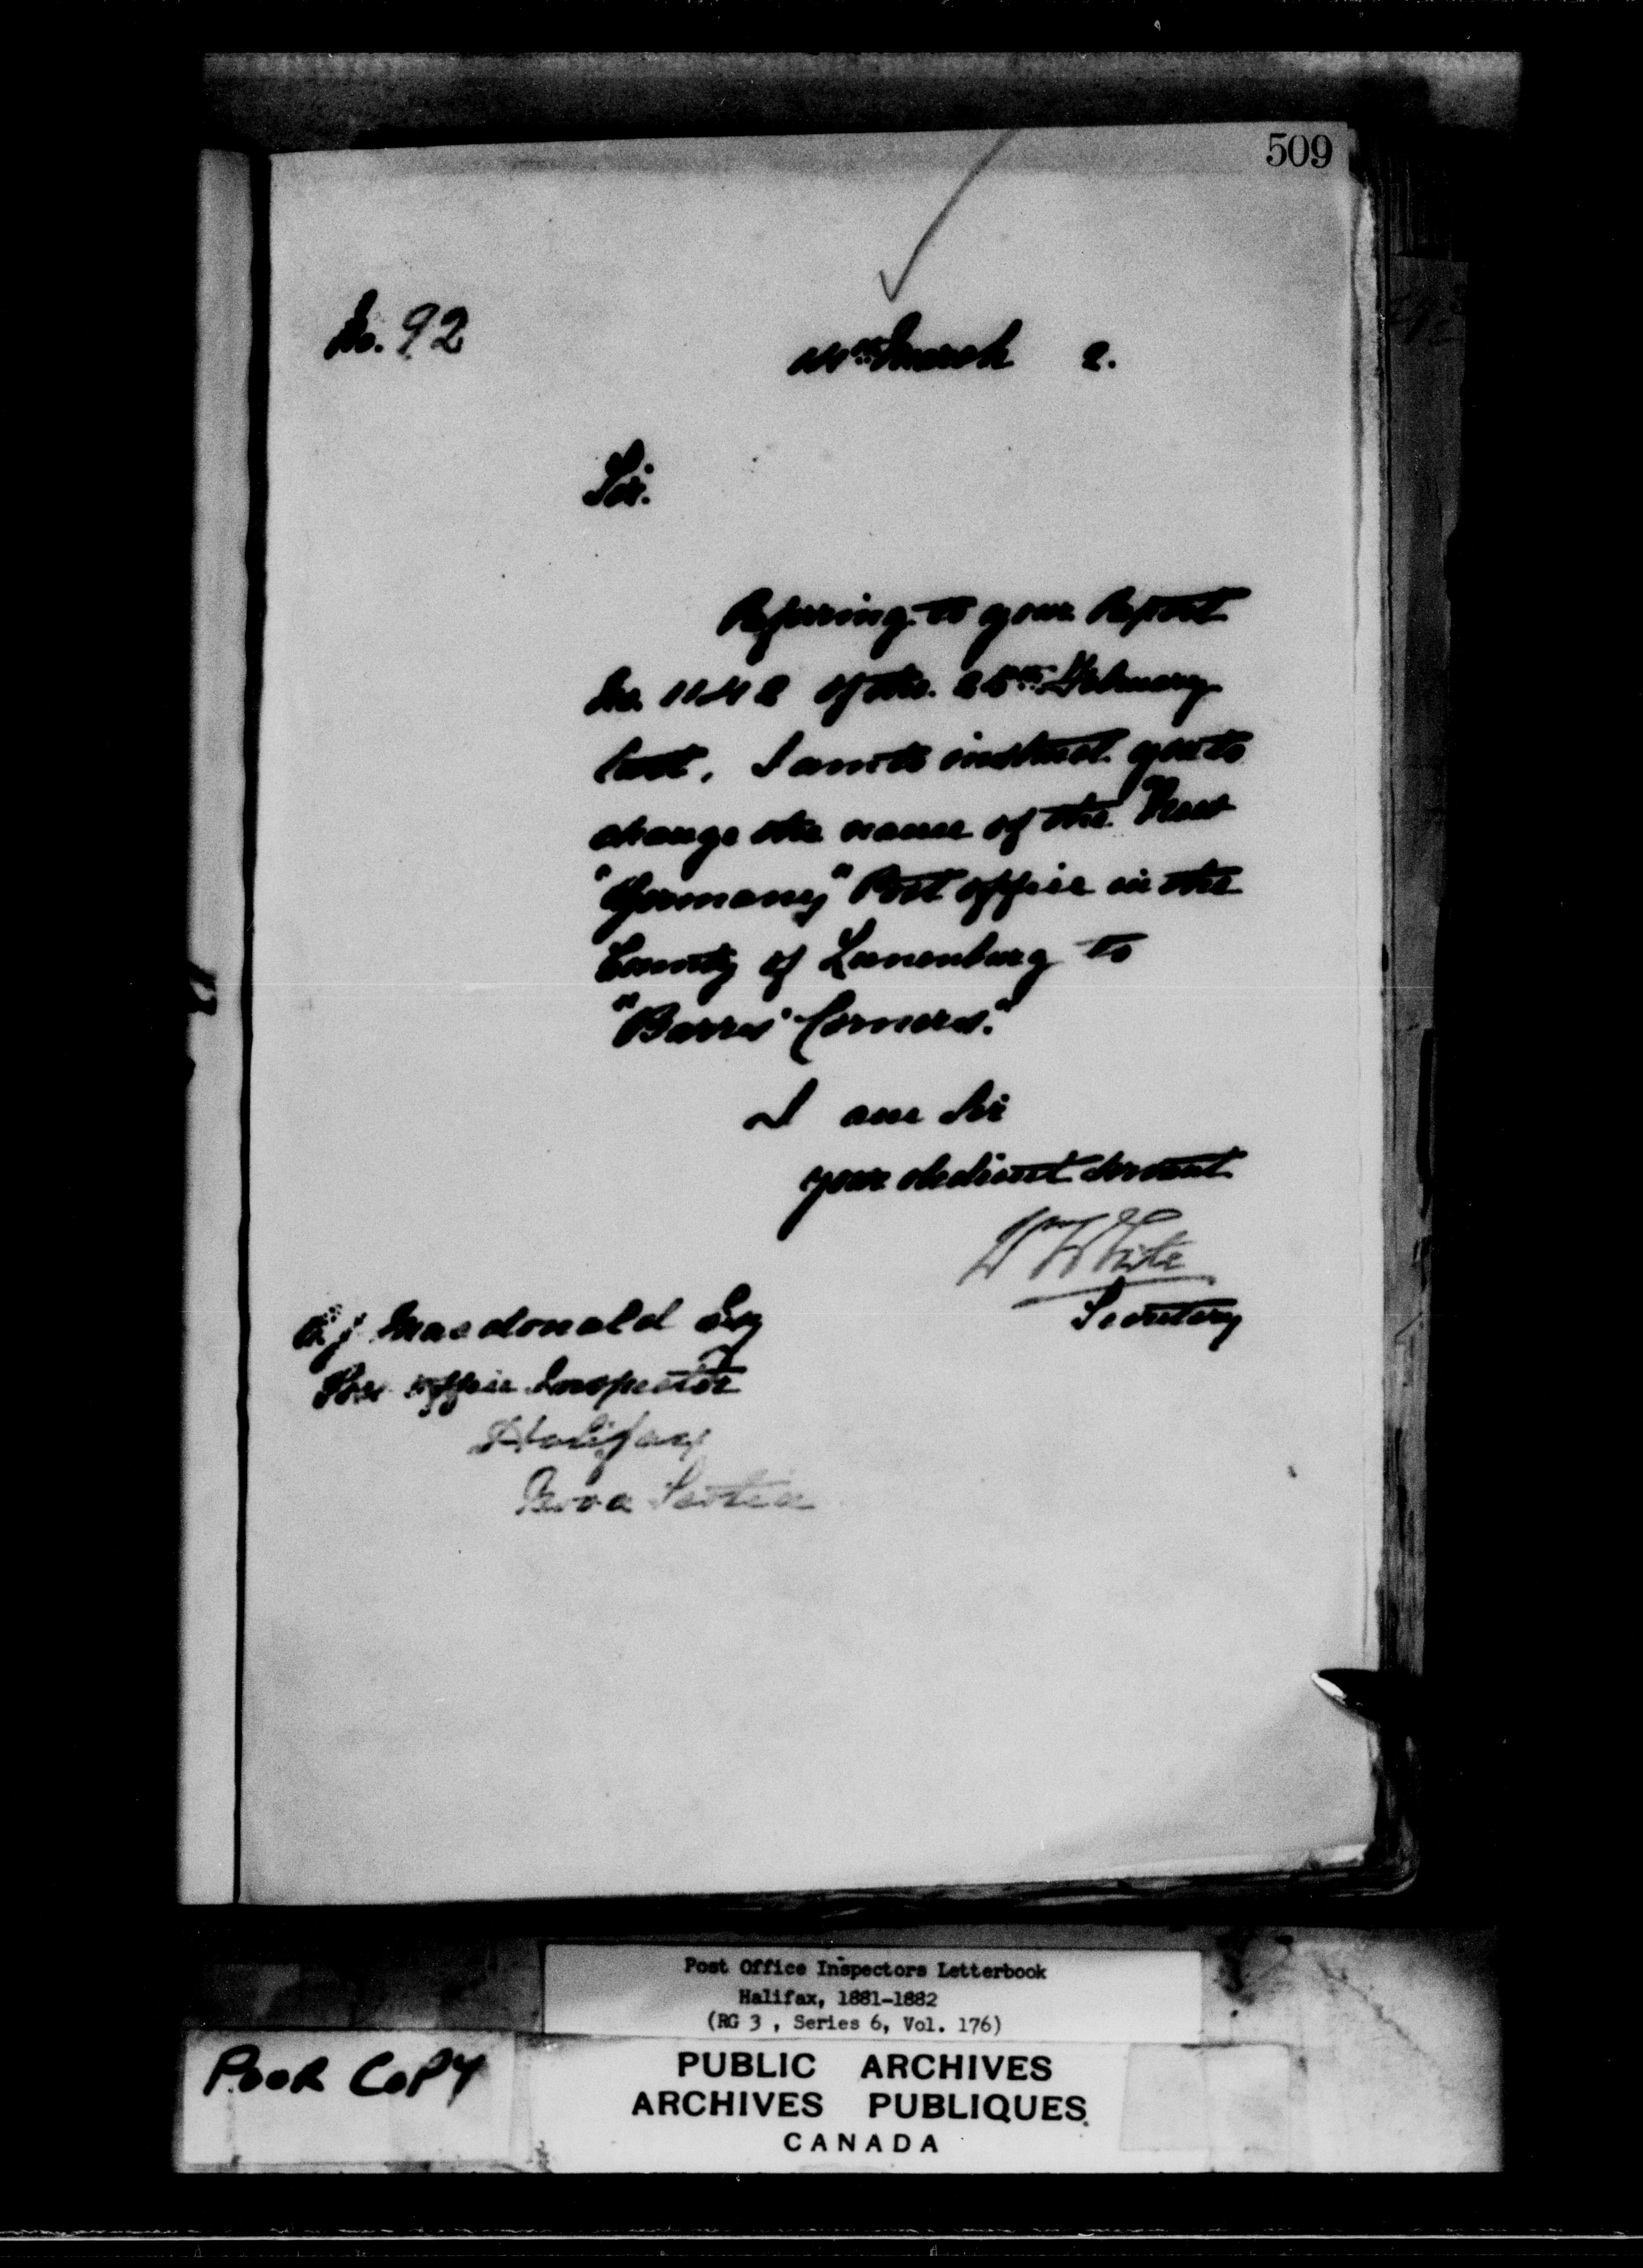 509
No. 92
March 2.
Sir.
Referring to your Report
No. 1142 of the 25th February
last, I am to instruct you to
change the name of the New
"Germany" Post office in the
County of Lunenburg to
"Barss' Corners."
I am Sir
your obedient servant
W White
Secretary
Macdonald Esq
Post office Inspector
Halifax
Nova Scotia
Post Office Inspectors Letterbook
Halifax, 1881-1882
(RG 3 , Series 6, Vol. 176)
POOR COPY
PUBLIC ARCHIVES
ARCHIVES PUBLIQUES
CANADA